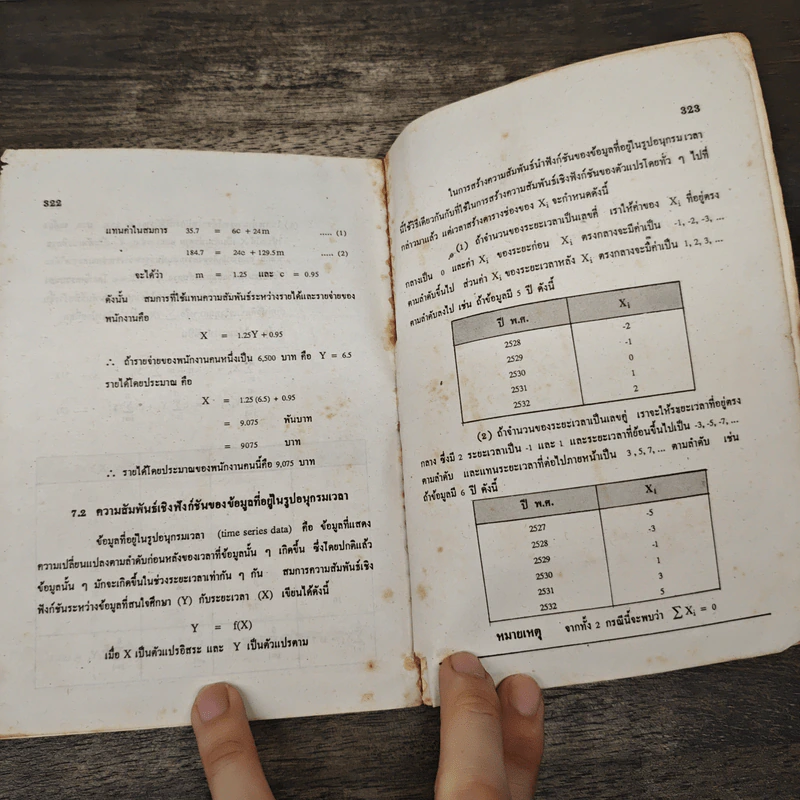 322
แทนค่าในสมการ 35.7 = 6c + 24m ..... (1)
184.7 = 24c + 129.5m ..... (2)
จะได้ว่า m = 1.25 และ c = 0.95
ดังนั้น สมการที่ใช้แทนความสัมพันธ์ระหว่างรายได้และรายจ่ายของ
พนักงานคือ
X = 1.25Y + 0.95
∴ ถ้ารายจ่ายของพนักงานคนหนึ่งเป็น 6,500 บาท คือ Y = 6.5
รายได้โดยประมาณ คือ
X = 1.25 (6.5) + 0.95
= 9.075 พันบาท
= 9075 บาท
∴ รายได้โดยประมาณของพนักงานคนนี้คือ 9,075 บาท
7.2 ความสัมพันธ์เชิงฟังก์ชันของข้อมูลที่อยู่ในรูปอนุกรมเวลา
ข้อมูลที่อยู่ในรูปอนุกรมเวลา (time series data) คือ ข้อมูลที่แสดง
ความเปลี่ยนแปลงตามลำดับก่อนหลังของเวลาที่ข้อมูลนั้น ๆ เกิดขึ้น ซึ่งโดยปกติแล้ว
ข้อมูลนั้น ๆ มักจะเกิดขึ้นในช่วงระยะเวลาเท่ากัน ๆ กัน สมการความสัมพันธ์เชิง
ฟังก์ชันระหว่างข้อมูลที่สนใจศึกษา (Y) กับระยะเวลา (X) เขียนได้ดังนี้
Y = f(X)
เมื่อ X เป็นตัวแปรอิสระ และ Y เป็นตัวแปรตาม
323
ในการสร้างความสัมพันธ์นำฟังก์ชันของข้อมูลที่อยู่ในรูปอนุกรมเวลา
นี้ใช้วิธีเดียวกันกับที่ใช้ในการสร้างความสัมพันธ์เชิงฟังก์ชันของตัวแปรโดยทั่ว ๆ ไปที่
กล่าวมาแล้ว แต่เวลาสร้างตารางช่องของ Xi จะกำหนดดังนี้
(1) ถ้าจำนวนของระยะเวลาเป็นเลขคี่ เราให้ค่าของ Xi ที่อยู่ตรง
กลางเป็น 0 และค่า Xi ของระยะก่อน Xi ตรงกลางจะมีค่าเป็น -1, -2, -3, ...
ตามลำดับขึ้นไป ส่วนค่า Xi ของระยะเวลาหลัง Xi ตรงกลางจะมีค่าเป็น 1, 2, 3, ...
ตามลำดับลงไป เช่น ถ้าข้อมูลมี 5 ปี ดังนี้
ปี พ.ศ. Xi
2528 -2
2529 -1
2530 0
2531 1
2532 2
(2) ถ้าจำนวนของระยะเวลาเป็นเลขคู่ เราจะให้ระยะเวลาที่อยู่ตรง
กลาง ซึ่งมี 2 ระยะเวลาเป็น -1 และ 1 และระยะเวลาที่ย้อนขึ้นไปเป็น -3, -5, -7, ...
ตามลำดับ และแทนระยะเวลาที่ต่อไปภายหน้าเป็น 3, 5, 7, ... ตามลำดับ เช่น
ถ้าข้อมูลมี 6 ปี ดังนี้
ปี พ.ศ. Xi
2527 -5
2528 -3
2528 -1
2529 1
2530 3
2531 5
2532
หมายเหตุ จากทั้ง 2 กรณีนี้จะพบว่า ∑ Xi = 0